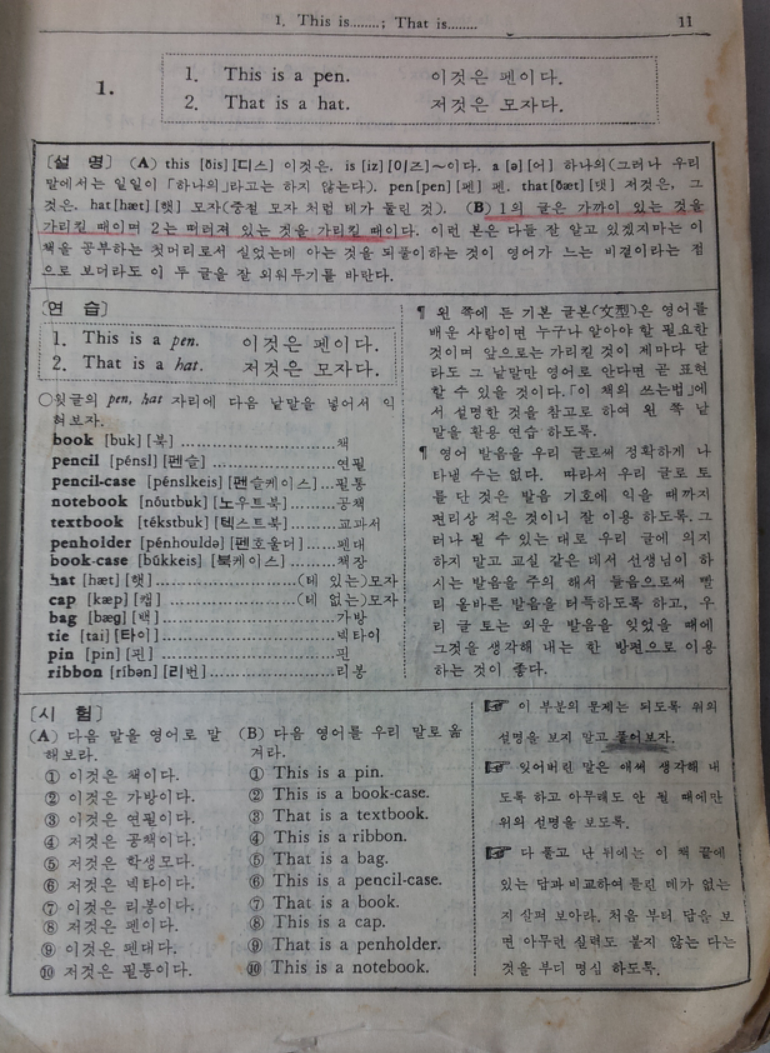 1. This is........; That is........ 11
1.
1. This is a pen. 이것은 펜이다.
2. That is a hat. 저것은 모자다.
〔설 명〕 (A) this [ðis][디스] 이것은. is [iz][이즈]~이다. a [ə][어] 하나의(그러나 우리
말에서는 일일이 「하나의」라고는 하지 않는다). pen[pen][펜] 펜. that[ðæt][댓] 저것은, 그
것은. hat[hæt][햇] 모자(중절 모자 처럼 테가 둘린 것). (B) 1의 글은 가까이 있는 것을
가리킬 때이며 2는 떠러져 있는 것을 가리킬 때이다. 이런 본은 다들 잘 알고 있겠지마는 이
책을 공부하는 첫머리로서 실었는데 아는 것을 되풀이하는 것이 영어가 느는 비결이라는 점
으로 보더라도 이 두 글을 잘 외워두기를 바란다.
〔연 습〕
1. This is a pen. 이것은 펜이다.
2. That is a hat. 저것은 모자다.
○윗글의 pen, hat 자리에 다음 낱말을 넣어서 익
혀보자.
book [buk][북] ........................책
pencil [pénsl][펜슬] ....................연필
pencil-case [pénslkeis][펜슬케이스]...필통
notebook [nóutbuk][노우트북].........공책
textbook [tékstbuk][텍스트북].........교과서
penholder [pénhouldə][펜호울더]......펜대
book-case [búkkeis][북케이스].........책장
hat [hæt][햇]....................(테 있는)모자
cap [kæp][캡] ....................(테 없는)모자
bag [bæg][백]..............................가방
tie [tai][타이]..............................넥타이
pin [pin][핀] ..............................핀
ribbon [ríbən][리번]........................리봉
¶ 왼 쪽에 든 기본 글본(文型)은 영어를
배운 사람이면 누구나 알아야 할 필요한
것이며 앞으로는 가리킬 것이 제마다 달
라도 그 낱말만 영어로 안다면 곧 표현
할 수 있을 것이다.「이 책의 쓰는법」에
서 설명한 것을 참고로 하여 왼 쪽 낱
말을 활용 연습 하도록.
¶ 영어 발음을 우리 글로써 정확하게 나
타낼 수는 없다. 따라서 우리 글로 토
를 단 것은 발음 기호에 익을 때까지
편리상 적은 것이니 잘 이용 하도록. 그
러나 될 수 있는 대로 우리 글에 의지
하지 말고 교실 같은 데서 선생님이 하
시는 발음을 주의 해서 들음으로써 빨
리 올바른 발음을 터득하도록 하고, 우
리 글 토는 외운 발음을 잊었을 때에
그것을 생각해 내는 한 방편으로 이용
하는 것이 좋다.
〔시 험〕
(A) 다음 말을 영어로 말
해보라.
① 이것은 책이다.
② 이것은 가방이다.
③ 이것은 연필이다.
④ 저것은 공책이다.
⑤ 저것은 학생모다.
⑥ 저것은 넥타이다.
⑦ 이것은 리봉이다.
⑧ 저것은 펜이다.
⑨ 이것은 펜대다.
⑩ 저것은 필통이다.
(B) 다음 영어를 우리 말로 옮
겨라.
① This is a pin.
② This is a book-case.
③ That is a textbook.
④ This is a ribbon.
⑤ That is a bag.
⑥ This is a pencil-case.
⑦ That is a book.
⑧ This is a cap.
⑨ That is a penholder.
⑩ This is a notebook.
☞ 이 부분의 문제는 되도록 위의
설명을 보지 말고 풀어보자.
☞ 잊어버린 말은 애써 생각해 내
도록 하고 아무래도 안 될 때에만
위의 설명을 보도록.
☞ 다 풀고 난 뒤에는 이 책 끝에
있는 답과 비교하여 틀린 데가 없는
지 살펴 보아라. 처음 부터 답을 보
면 아무런 실력도 붙지 않는 다는
것을 부디 명심 하도록.